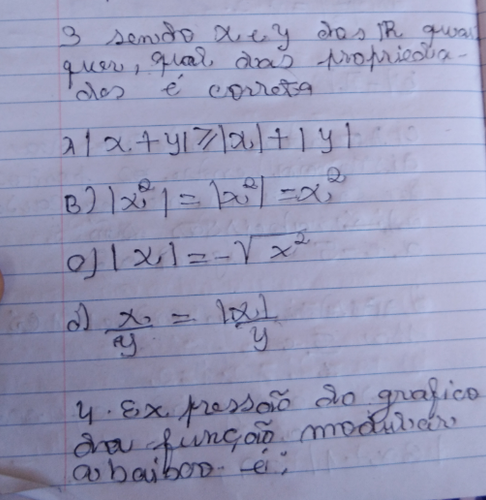 3 sendo x e y dos IR quais
quer, qual das proprieda-
des é correta
a) |x + y| ≥ |x| + |y|
B) |x²| = |x²| = x²
c) |x| = -√x²
d) x/y = |x|/y
4. Expressão do grafico
da função modular
abaixo é: